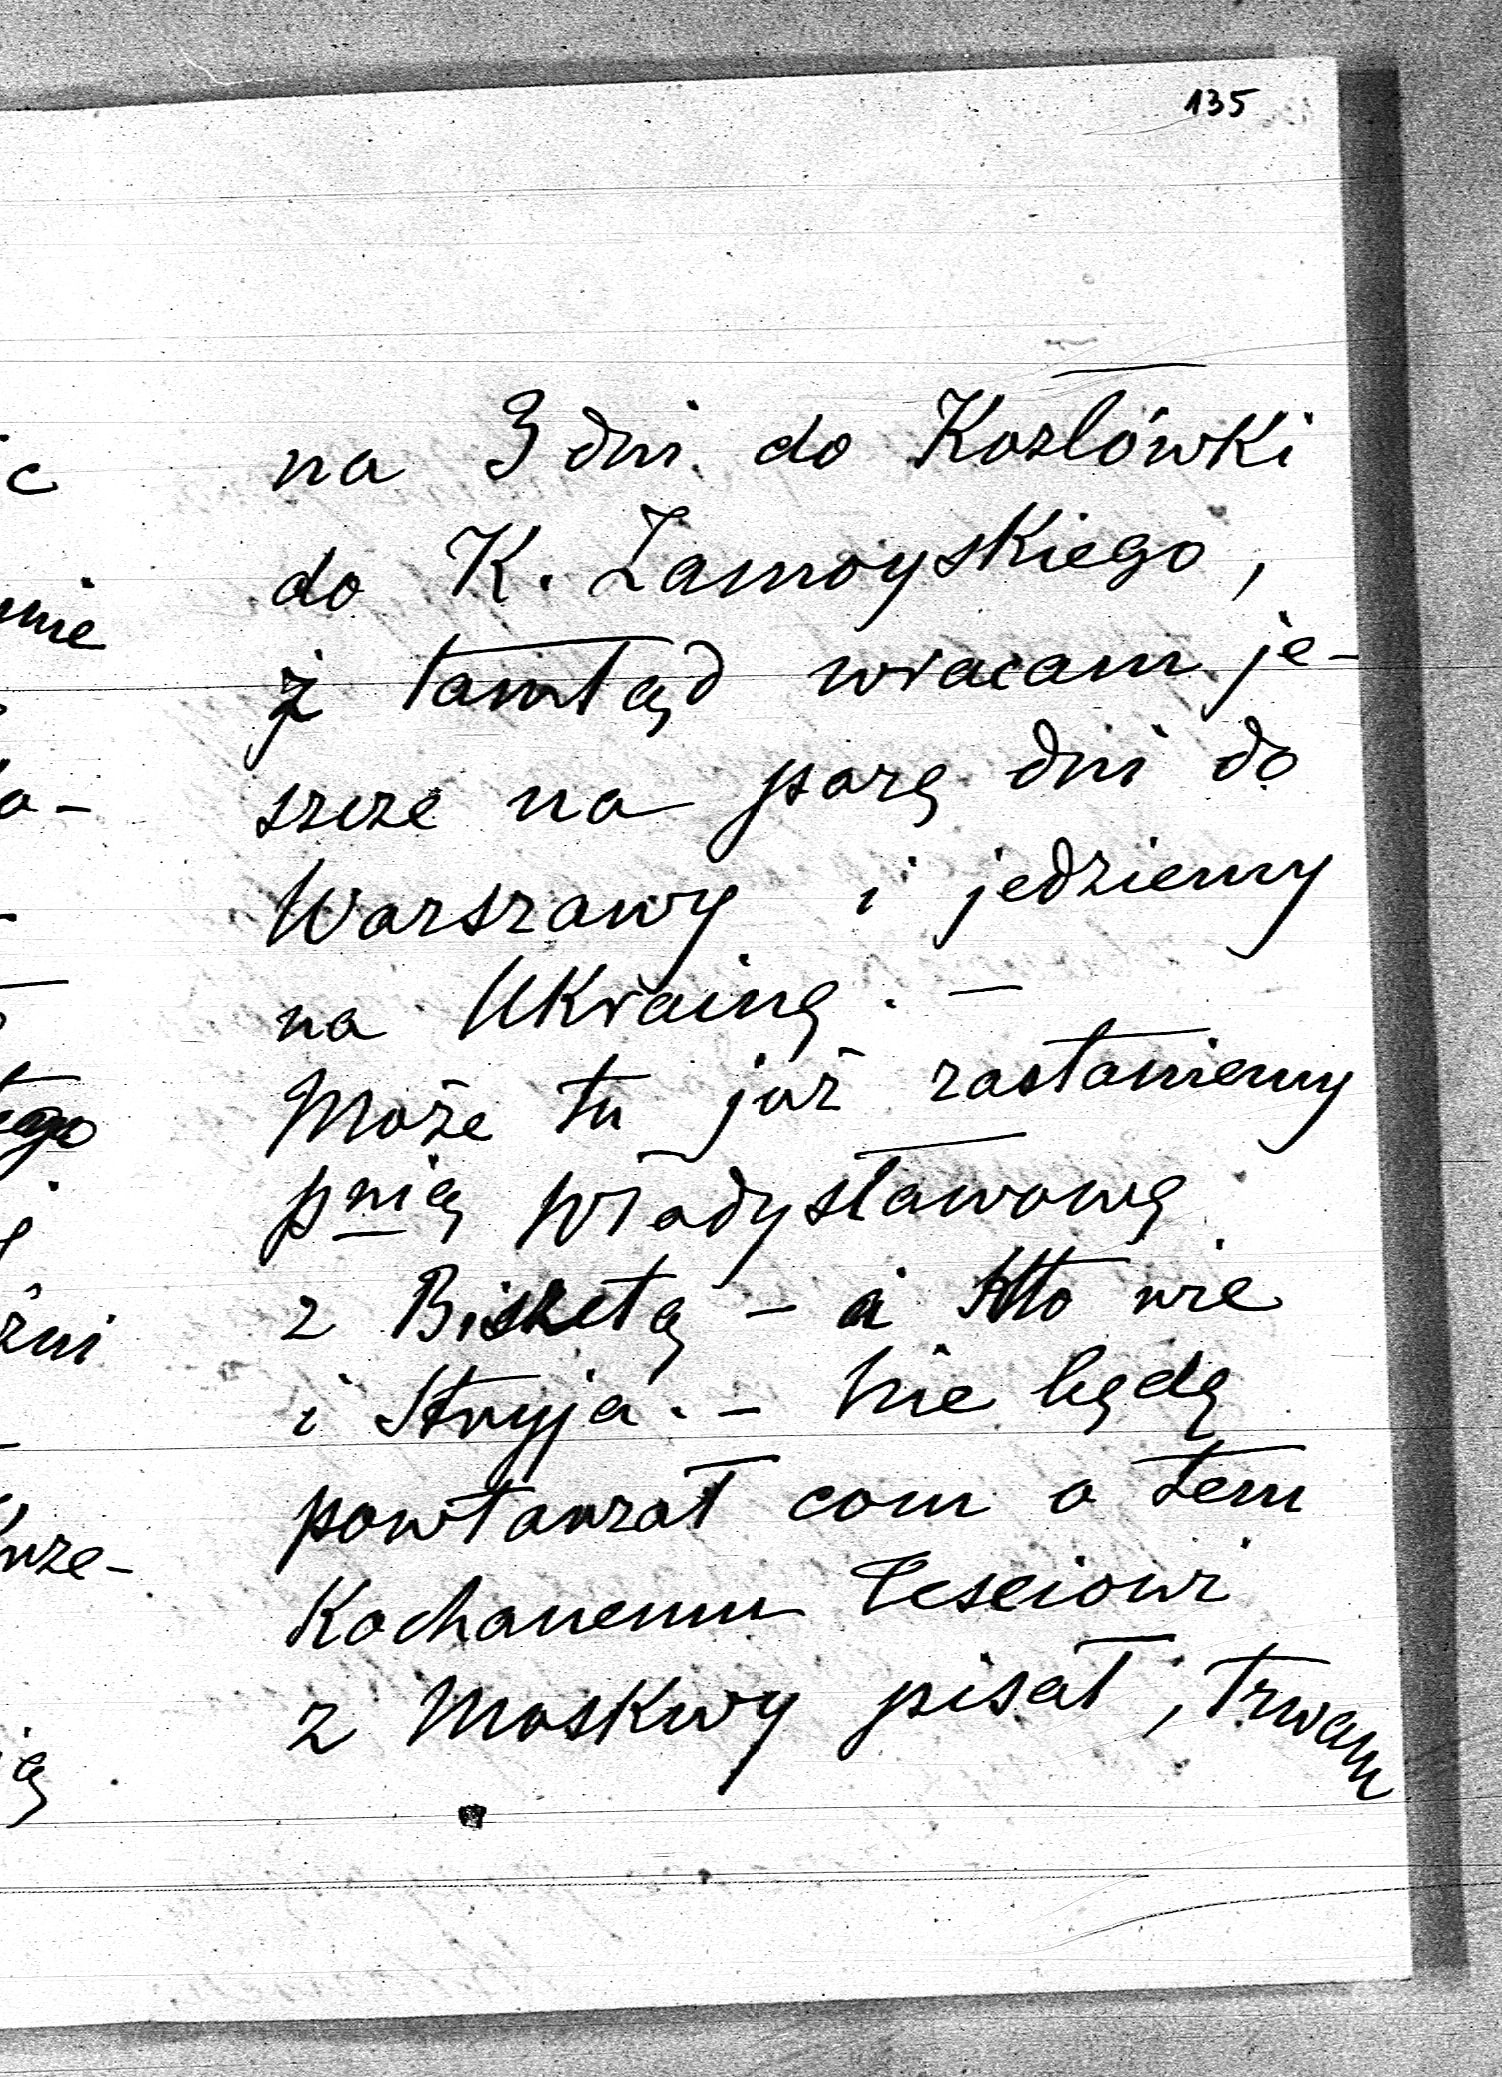 135
na 3 dni do Kozłówki
do K. Zamoyskiego,
z tamtąd wracam je-
szcze na parę dni do
Warszawy i jedziemy
na Ukrainę. —
Może tu już zastaniemy
pnią Władysławową
z Biszetą – a kto wie
i Stryja. – Nie będę
powtarzał com o tem
Kochanemu Teściowi
z Moskwy pisał, trwam